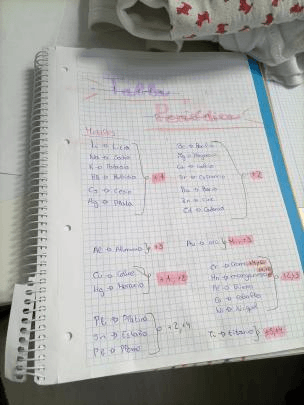 Tabla
Periódica
Metales
Li → Litio
Na → Sodio
K → Potasio
Rb → Rubidio
Cs → Cesio
Ag → Plata
+1
Be → Berilio
Mg → Magnesio
Ca → Calcio
Sr → Estroncio
Ba → Bario
Zn → Zinc
Cd → Cadmio
+2
Al → Aluminio } +3
Au → oro } +1, +3
Cu → Cobre
Hg → Mercurio
+1, +2
Cr → Cromo
Mn → manganeso
Fe → Hierro
Co → Cobalto
Ni → Níquel
+2, +3
Pt → Platino
Sn → Estaño
Pb → Plomo
+2, +4
Ti → titanio } +3, +4